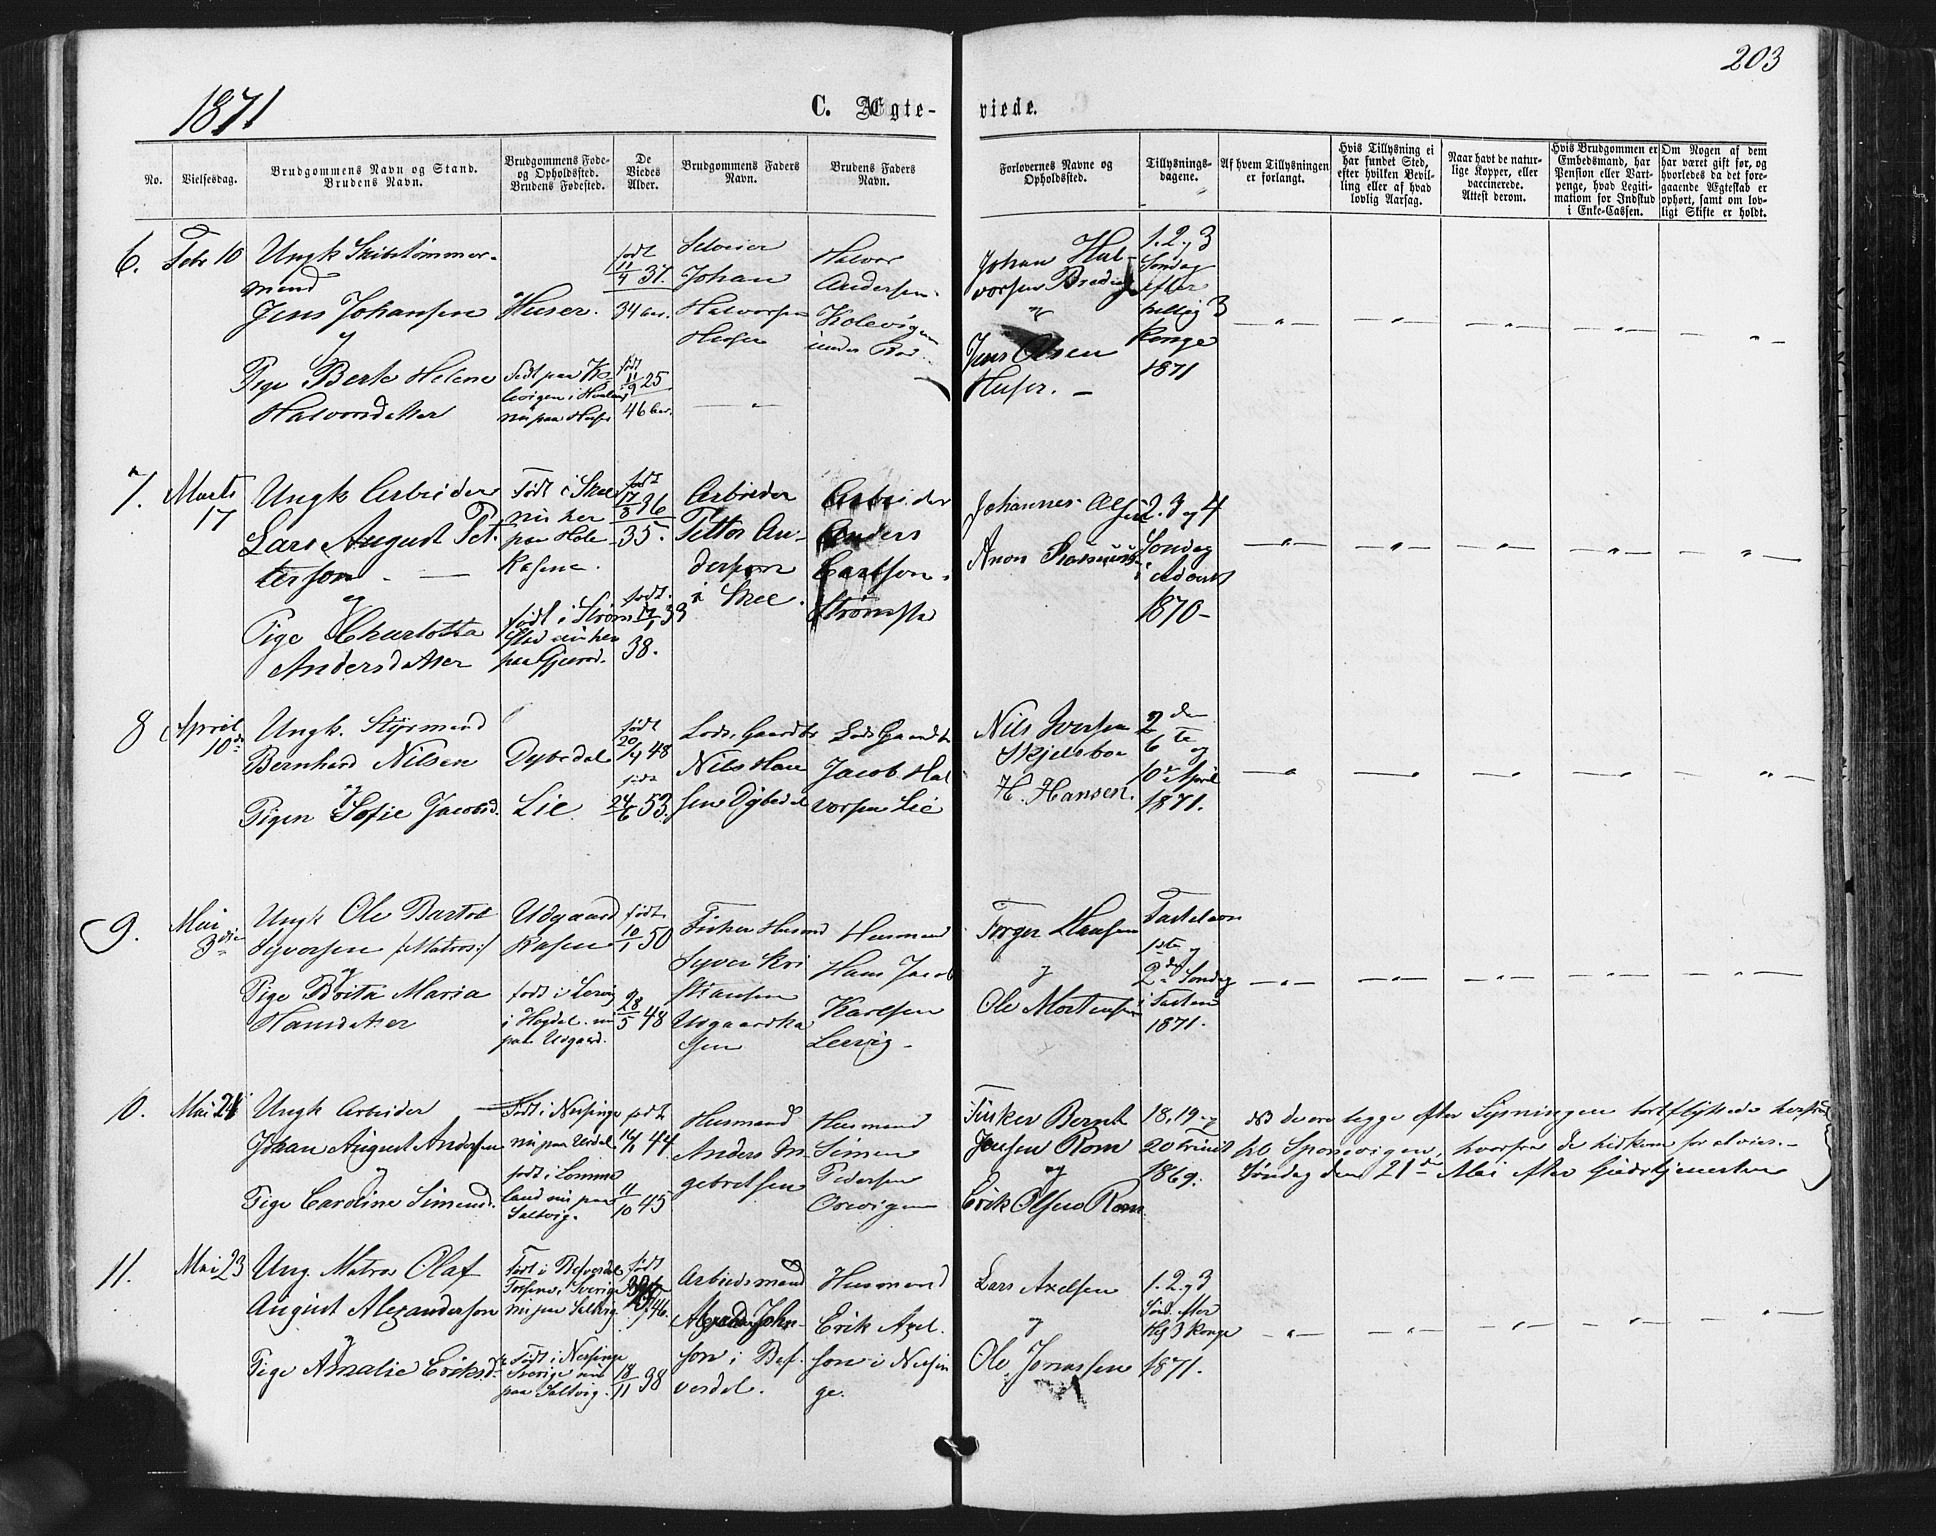 203
1871
C. Ægte-
viede.
No.
Vielsesdag.
Brudgommens Navn og Stand.
Brudens Navn.
Brudgommens Føde-
og Opholdssted.
Brudens Fødested.
De
Viedes
Alder.
Brudgommens Faders
Navn.
Brudens Faders
Navn.
Forlovernes Navne og
Opholdssted.
Tillysnings-
dagene.
Af hvem Tillysningen
er forlangt.
Hvis Tillysning ei
har fundet Sted,
efter hvilken Bevil-
ling eller af hvad
lovlig Aarsag.
Naar havt de natur-
lige Kopper, eller
vaccinerede.
Attest derom.
Hvis Brudgommen er
Embedsmand, har
Pension eller Vart-
penge, hvad Legiti-
mation for Indskud
i Enke-Cassen.
Om Nogen af dem
har været gift før, og
hvorledes da det fore-
gaaende Ægteskab er
ophørt, samt om lov-
ligt Skifte er holdt.
6.
Febr 10
Ungk Skibstømmer-
mand
Jens Johansen
og
Pige Berte Helene
Halvorsdatter
Huser.
født paa Ko
levigen i
nu paa Huser
født
11/4 37.
34 aar.
født
11/9 25
46 aar.
Johan
Halvorsen
Huser
Halvor
Andersen
Kolevigen
under
Johan Hal-
vorsen
og
Jens Olsen
Huser.
1. 2. og 3
Søndag
efter
hellig 3
Konge
1871
7.
Marts
17
Ungk Arbeider
Lars August Pet-
terson
og
Pige Charlotta
Andersdatter
Født i Skee
nu her
paa Hole
Kasene.
født i Strøm
stad nu her
paa
født
17/8 36
35.
født
17/1 33
38.
Arbeider
Petter An-
dersson
i Skee.
Arbeider
Anders
Carlson
Strømsta
Johannes Olsen
Anon Rasmuss
2. 3 og 4
Søndag
i Advent
1870-
8
April
10de
Ungk. Styrmand
Bernhard Nilsen
og
Pigen Sofie Jacobsd.
Dybedal
Lie
født
20/4 48
født
24/6 53.
Lods. Gaardbr
Nils Han
sen Dybedal
Lods Gaardbr
Jacob Hal
vorsen Lie
Nils Iversen
Skjelsboe
H. Hansen.
2den
6te og
10de April
1871.
9.
Mai
3die
Ungk Ole Bartol
Syversen /:Matros:/
og
Pige Brita Maria
Hansdatter
Udgaard
Kasene
født i Lervig
i Hogdal. nu
paa Udgaard.
født
10/1 50
28/5 48
Fisker Husmd
Syver Kri
stiansen
Udgaardka
sen
Husmand
Hans Jacob
Karlsen
Lervig.
Torger Hansen
og
Ole Mortensen
Fastelavn
1ste
og
2den Søndag
i Fasten
1871.
10.
Mai 21
Ungk Arbeider
Johan August Andersen
og
Pige Caroline Simensd.
Født i Nesinge
nu paa
født i Lomme
land nu paa
Saltvig.
født
14/1 44
11/10 45
Husmand
Anders In
gebretsen
Husmand
Simen
Pedersen
Orevigen
Fisker Bernt
Jensen Rom
og
Erik Olsen Rom
18. 19. og
20 Trinit
1869.
da de ere begge efter Lysningen bortflyttede herfra
til Sponevigen, hvorfra de hidkom for at vies.
Søndag den 21de Mai efter Gudstjenesten
11.
Mai 23
Ung. Matros Olaf
August Alexanderson
og
Pige Amalie Eriksd.
Født i
Sverige
nu paa Saltvig
Født i Nesinge
Sverige nu
paa Saltvig.
født
46.
18/11 38
Arbeidsmand
Alexander John-
son i Bef-
verdal.
Husmand
Erik Axel-
son i Nesin
ge.
Lars Axelsen
og
Ole Jonassen
1. 2. og 3
Sønd. efter
Hlg 3 Konge
1871.